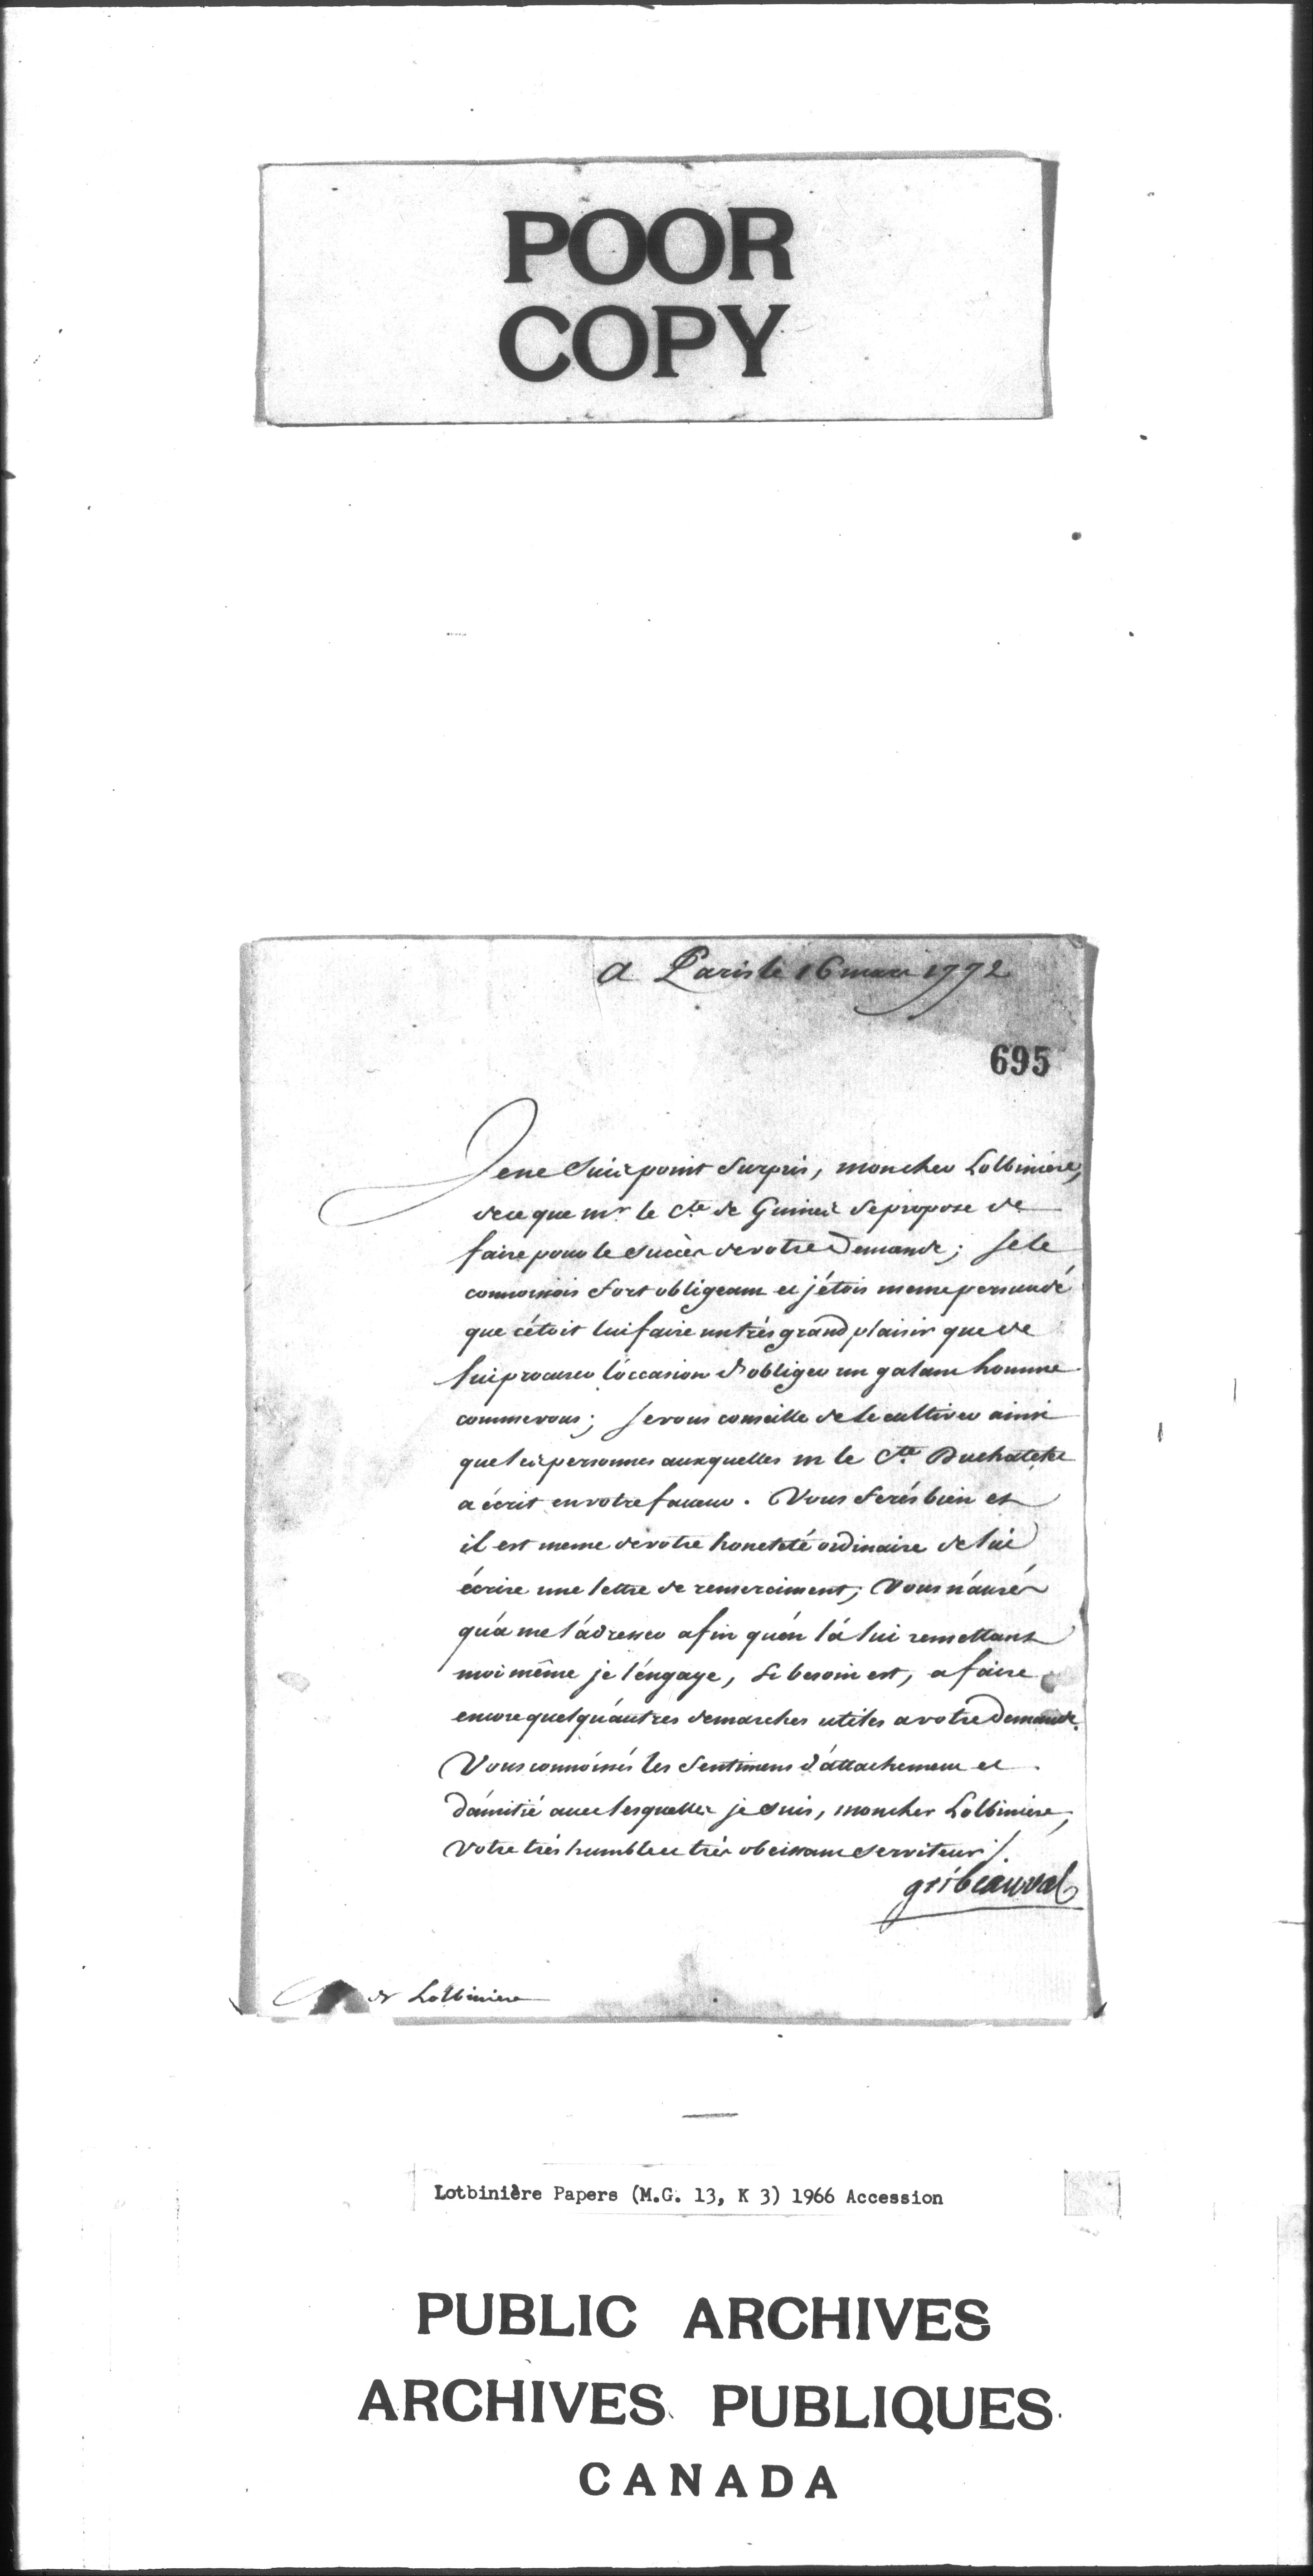 POOR
COPY
a Paris le 16 mars 1772
695
Je ne suis point surpris, mon cher Lolbiniere,
de ce que mr. le Cte de Guines se propose de
faire pour le succès de votre demande; je le
connoissois fort obligeant et j'étois meme persuadé
que c'étoit lui faire un très grand plaisir que de
lui procurer l'occasion d'obliger un galant homme
comme vous; je vous conseille de le cultiver ainsi
que les personnes auxquelles m le Cte. Duchatelet
a écrit en votre faveur. Vous ferés bien et
il est meme de votre honeteté ordinaire de lui
écrire une lettre de remerciment; Vous n'aurés
qu'a me l'adresser afin qu'en la lui remettant
moi même je l'engage, si besoin est, a faire
encore quelqu'autres demarches utiles a votre demande.
Vous connoissés les sentimens d'attachement et
d'amitié avec lesquelles je suis, mon cher Lolbiniere,
Votre très humble et très obeissant serviteur /.
gribeauval
de Lolbiniere
Lotbinière Papers (M.G. 13, K 3) 1966 Accession
PUBLIC ARCHIVES
ARCHIVES PUBLIQUES
CANADA